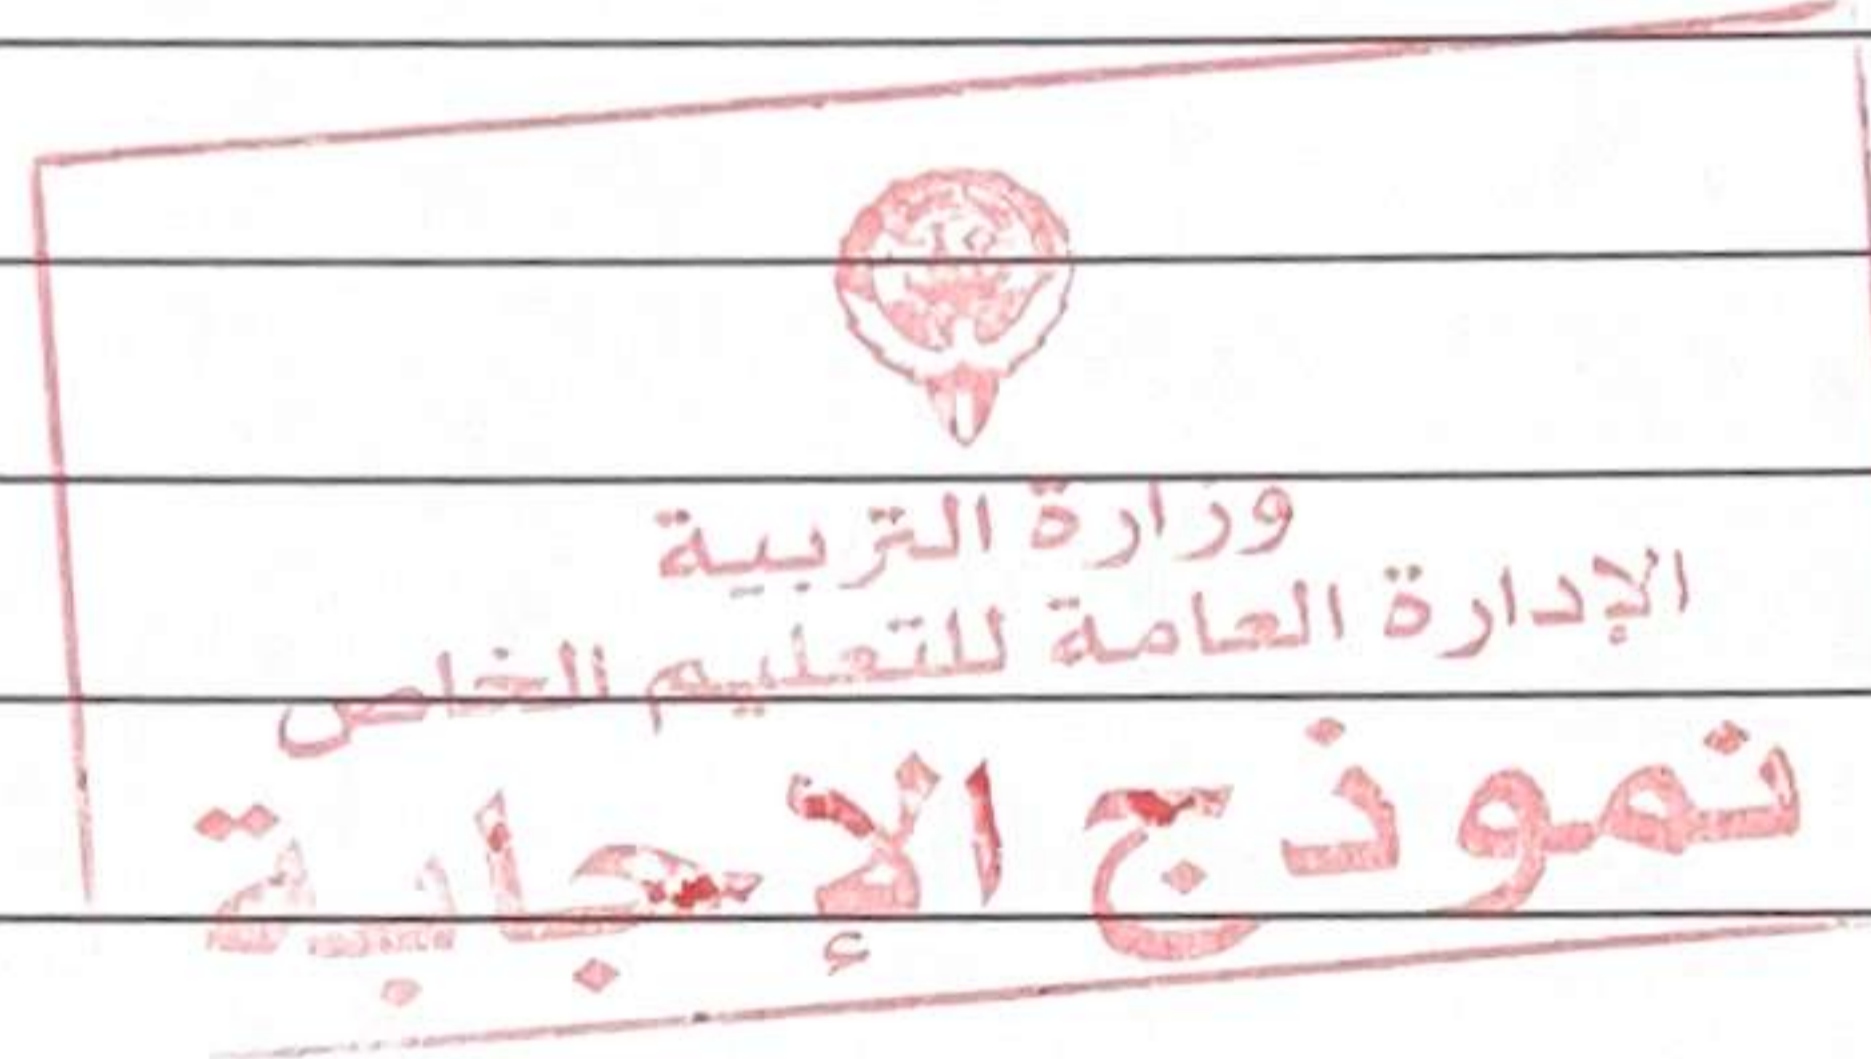 وزارة التربية
الإدارة العامة للتعليم الخاص
نموذج الإجابة